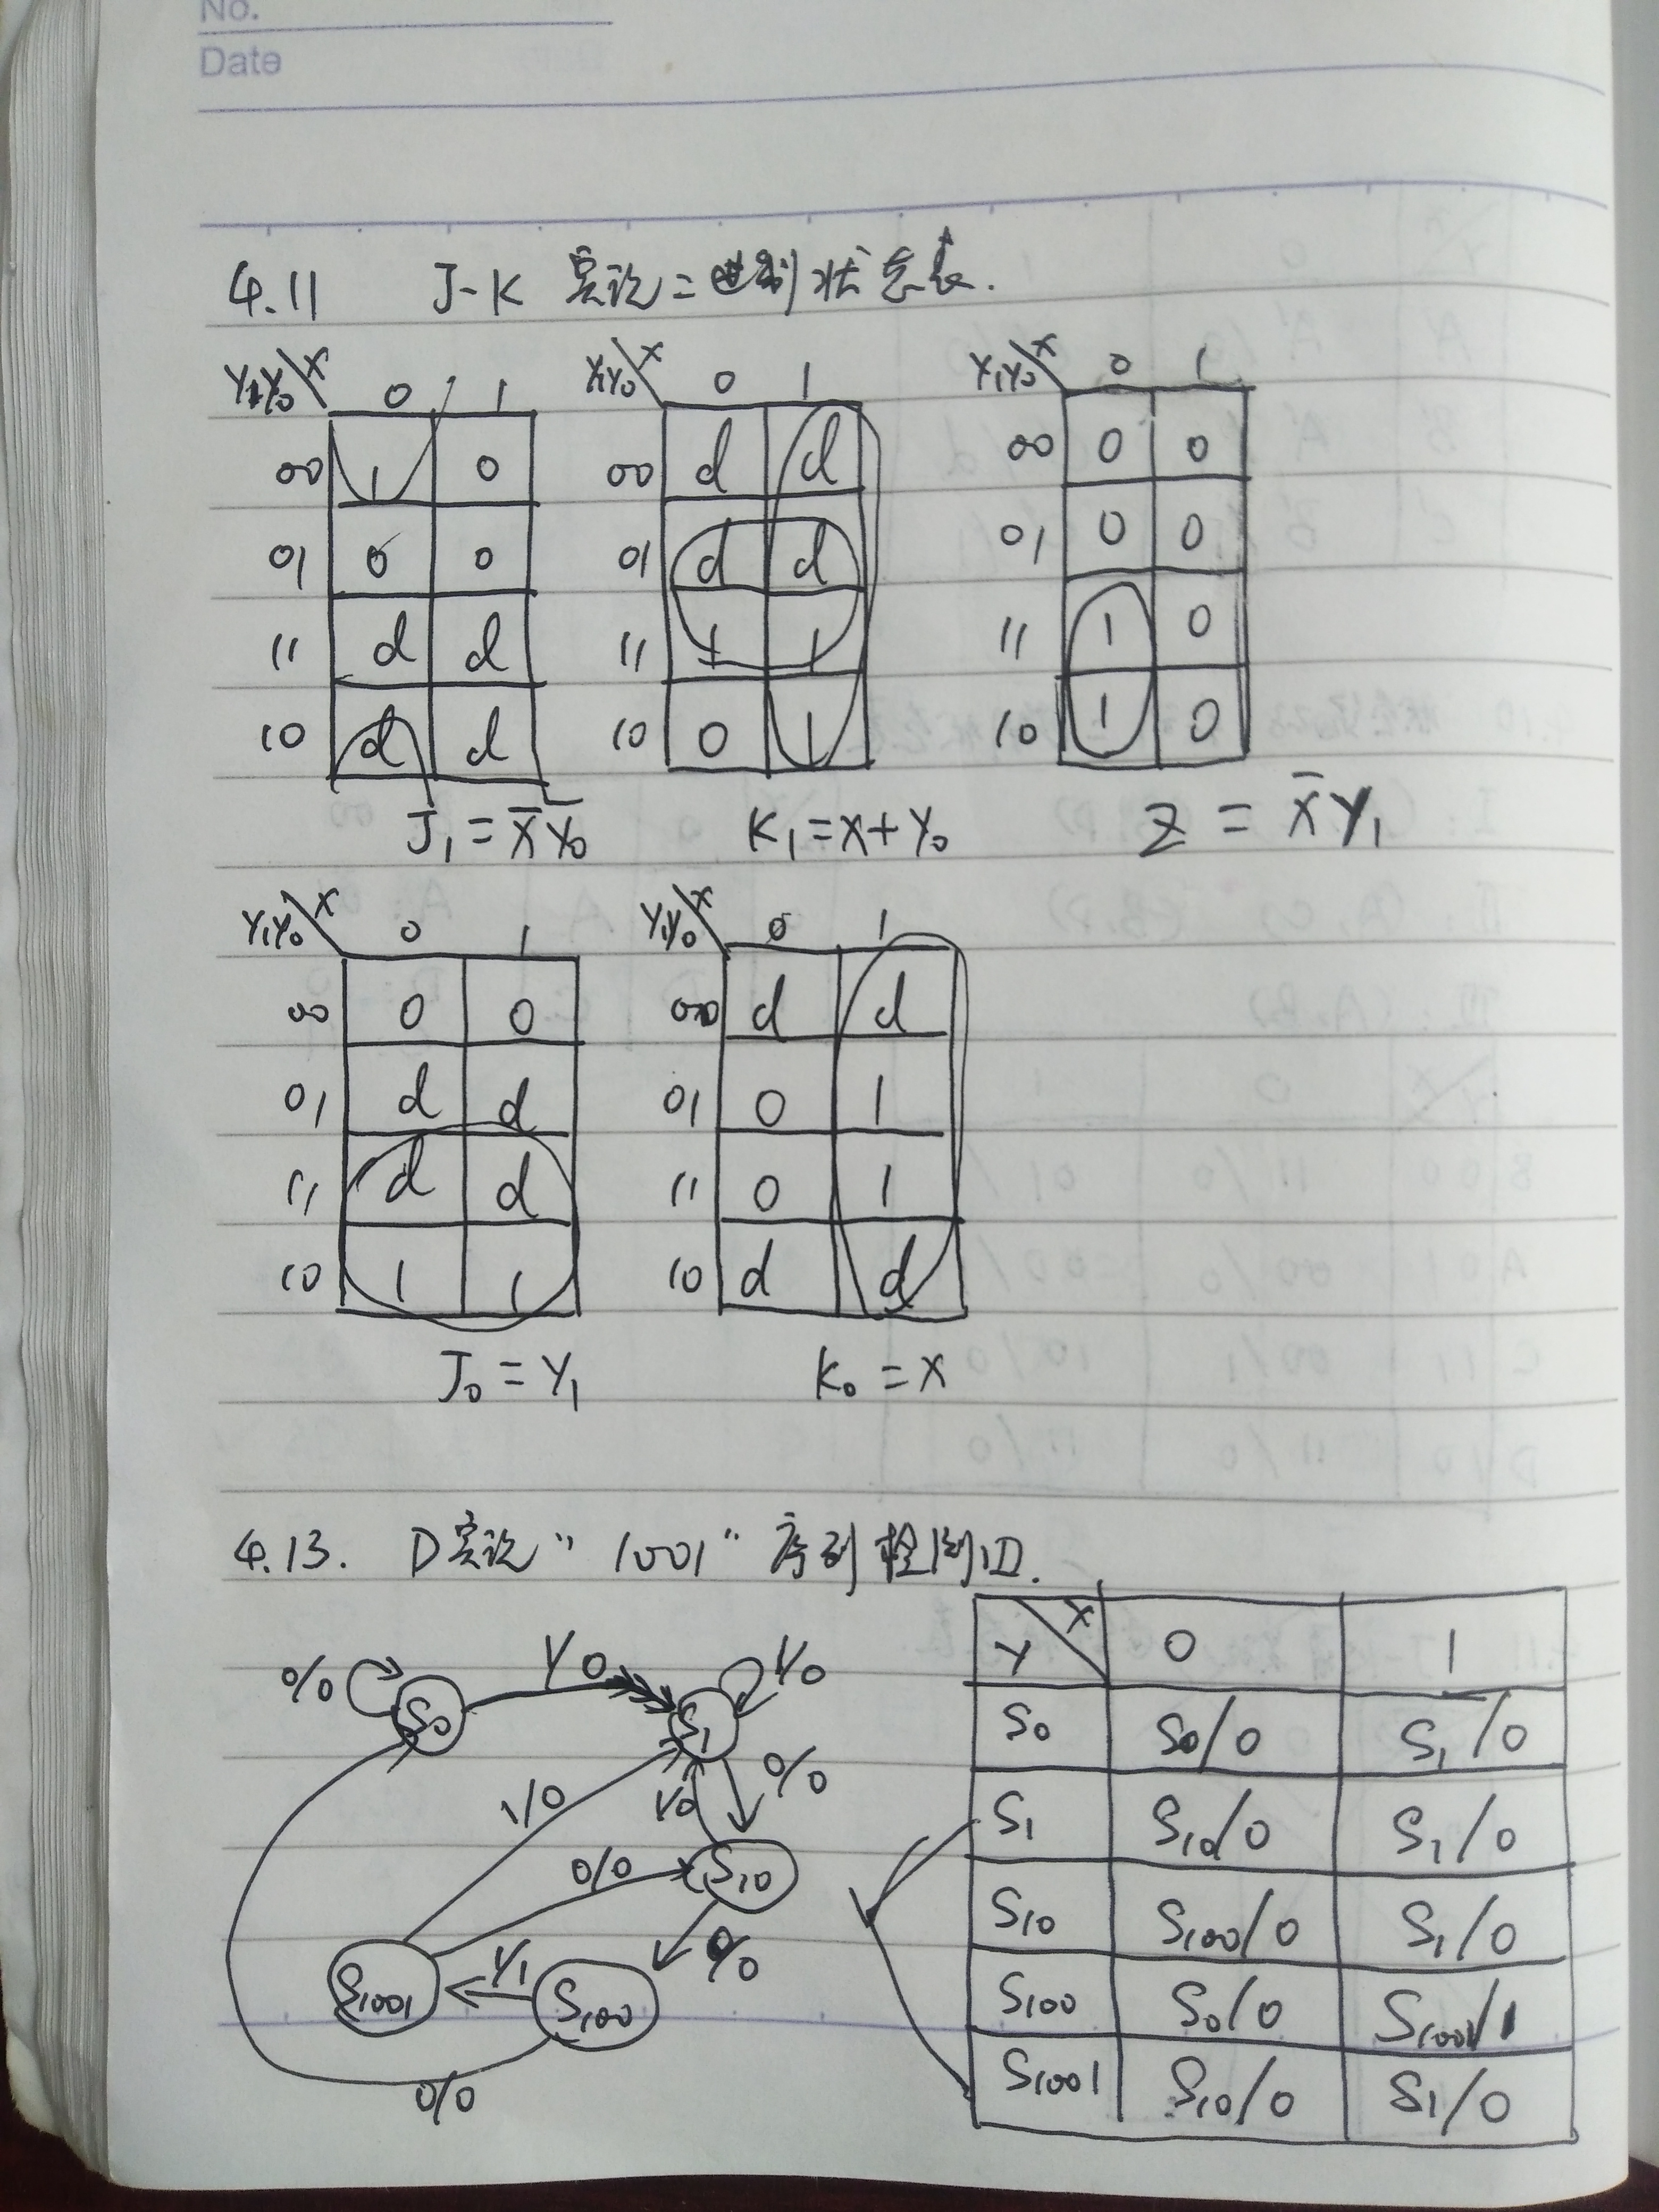 No.
Date
4.11 J-K 实现二进制状态表.
Y₁Y₀\X 0 1
00 1 0
01 0 0
11 d d
10 d d
J₁ = X̅ Y̅₀
Y₁Y₀\X 0 1
00 d d
01 d d
11 1 1
10 0 1
K₁ = X + Y₀
Y₁Y₀\X 0 1
00 0 0
01 0 0
11 1 0
10 1 0
Z = X̅ Y₁
Y₁Y₀\X 0 1
00 0 0
01 d d
11 d d
10 1 1
J₀ = Y₁
Y₁Y₀\X 0 1
00 d d
01 0 1
11 0 1
10 d d
K₀ = X
4.13. D实现“1001”序列检测.
0/0 S₀ 1/0 S₁ 1/0
1/0 1/0 0/0
0/0 S₁₀
S₁₀₀₁ 1/1 S₁₀₀ 0/0
0/0
Y\X 0 1
S₀ S₀/0 S₁/0
S₁ S₁₀/0 S₁/0
S₁₀ S₁₀₀/0 S₁/0
S₁₀₀ S₀/0 S₁₀₀₁/1
S₁₀₀₁ S₁₀/0 S₁/0